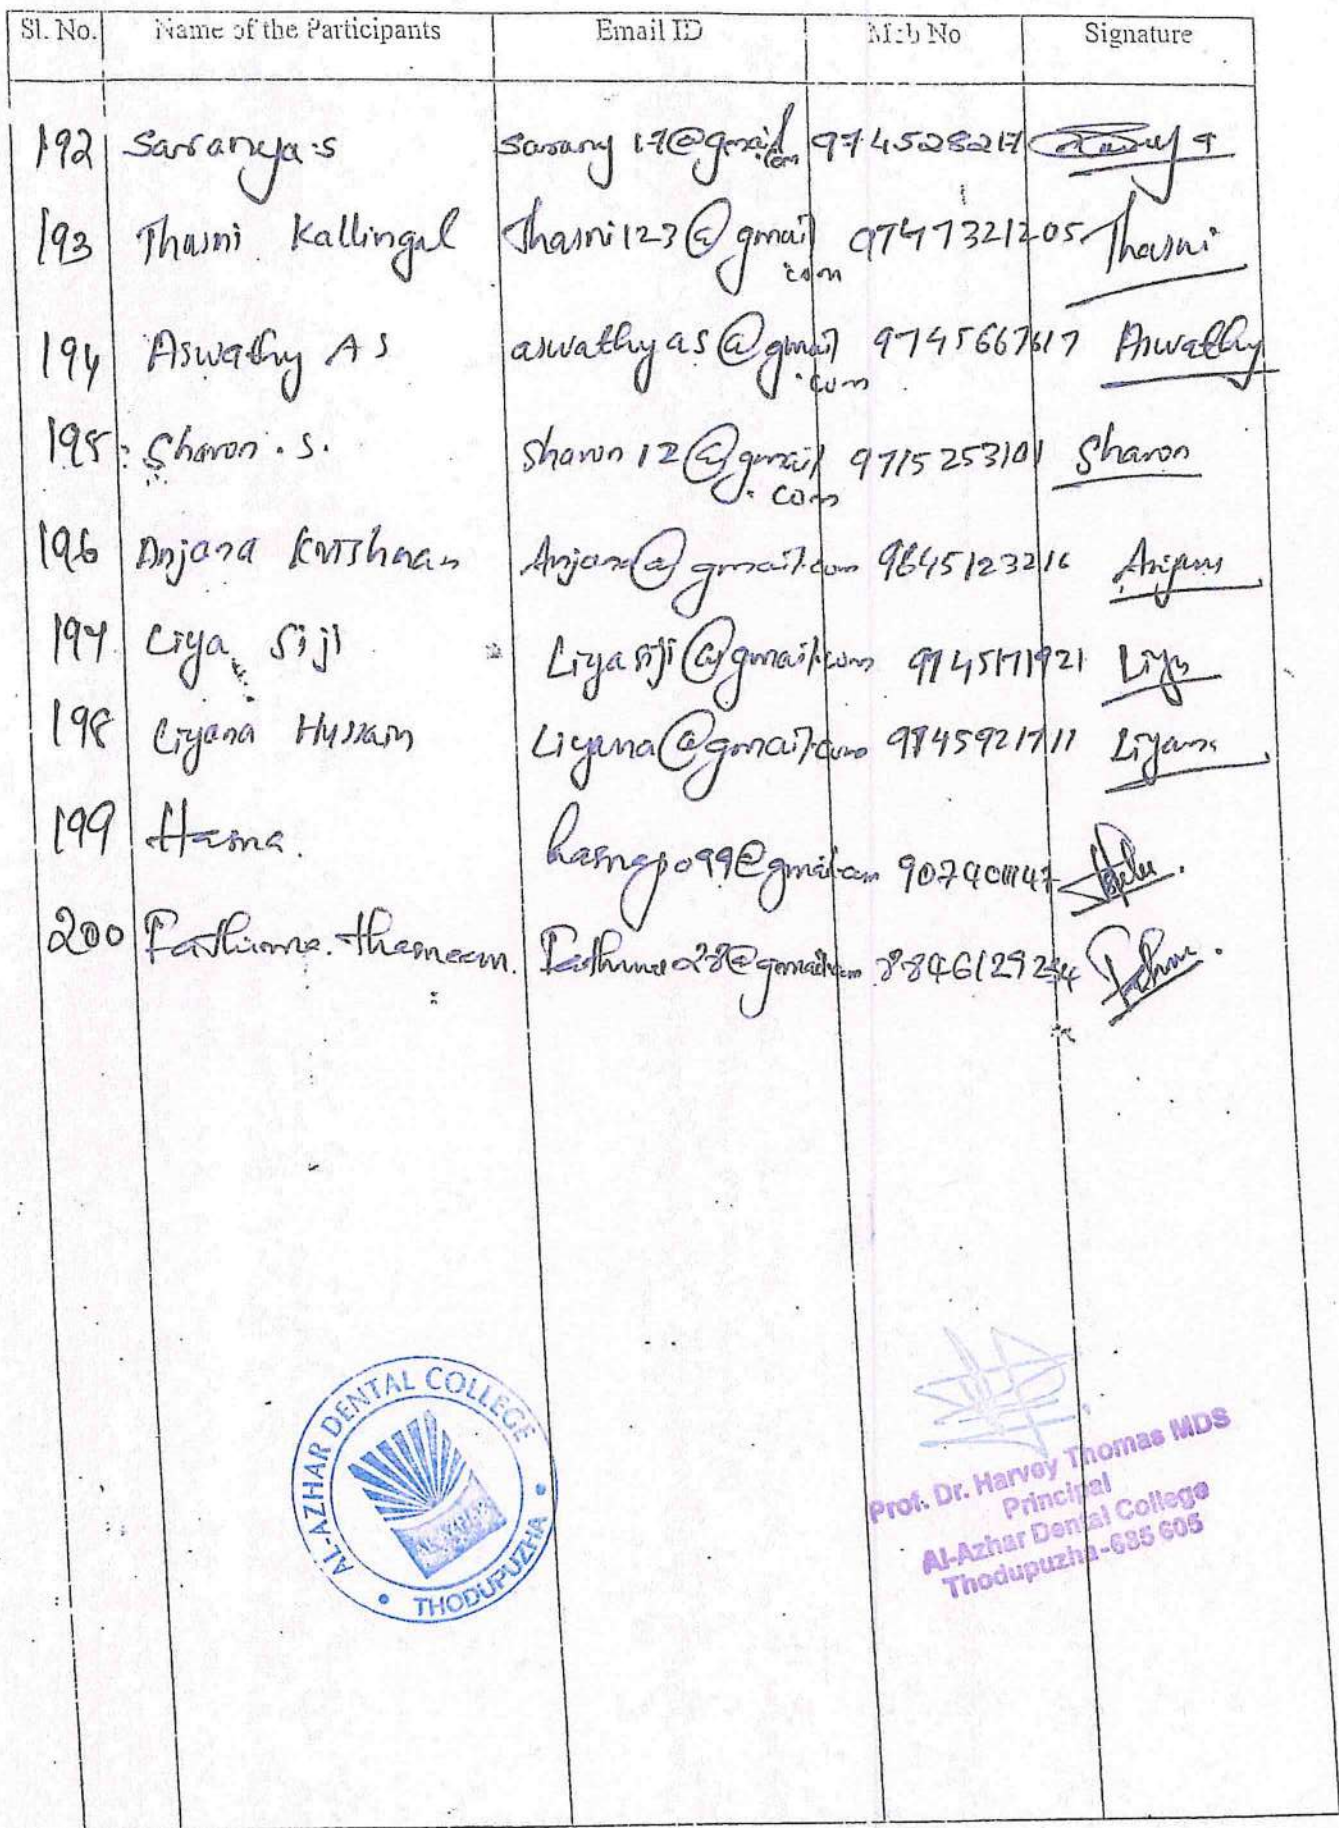 Sl. No. Name of the Participants Email ID Mob No Signature
192 Saranya.s sarany 17@gmail.com 974528217
193 Thasni Kallingal Thasni123@gmail.com 97477321205 Thasni
194 Aswathy A S aswathyas@gmail.com 9745667617 Aswathy
195 Sharon.S. Sharon12@gmail.com 9715253101 Sharon
196 Anjana Krishnan Anjana@gmail.com 9645123216 Anjana
197 Liya Siji Liyasiji@gmail.com 9745171921 Liya
198 Liyana Hussain Liyana@gmail.com 9845921711 Liyana
199 Hasna.
200 Fathima.thasneem. 8846129254
AL-AZHAR DENTAL COLLEGE
• THODUPUZHA •
Prof. Dr. Harvey Thomas MDS
Principal
Al-Azhar Dental College
Thodupuzha-685 605